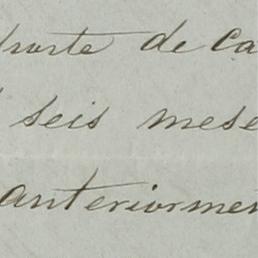 parte de ca
seis mese
anteriormen